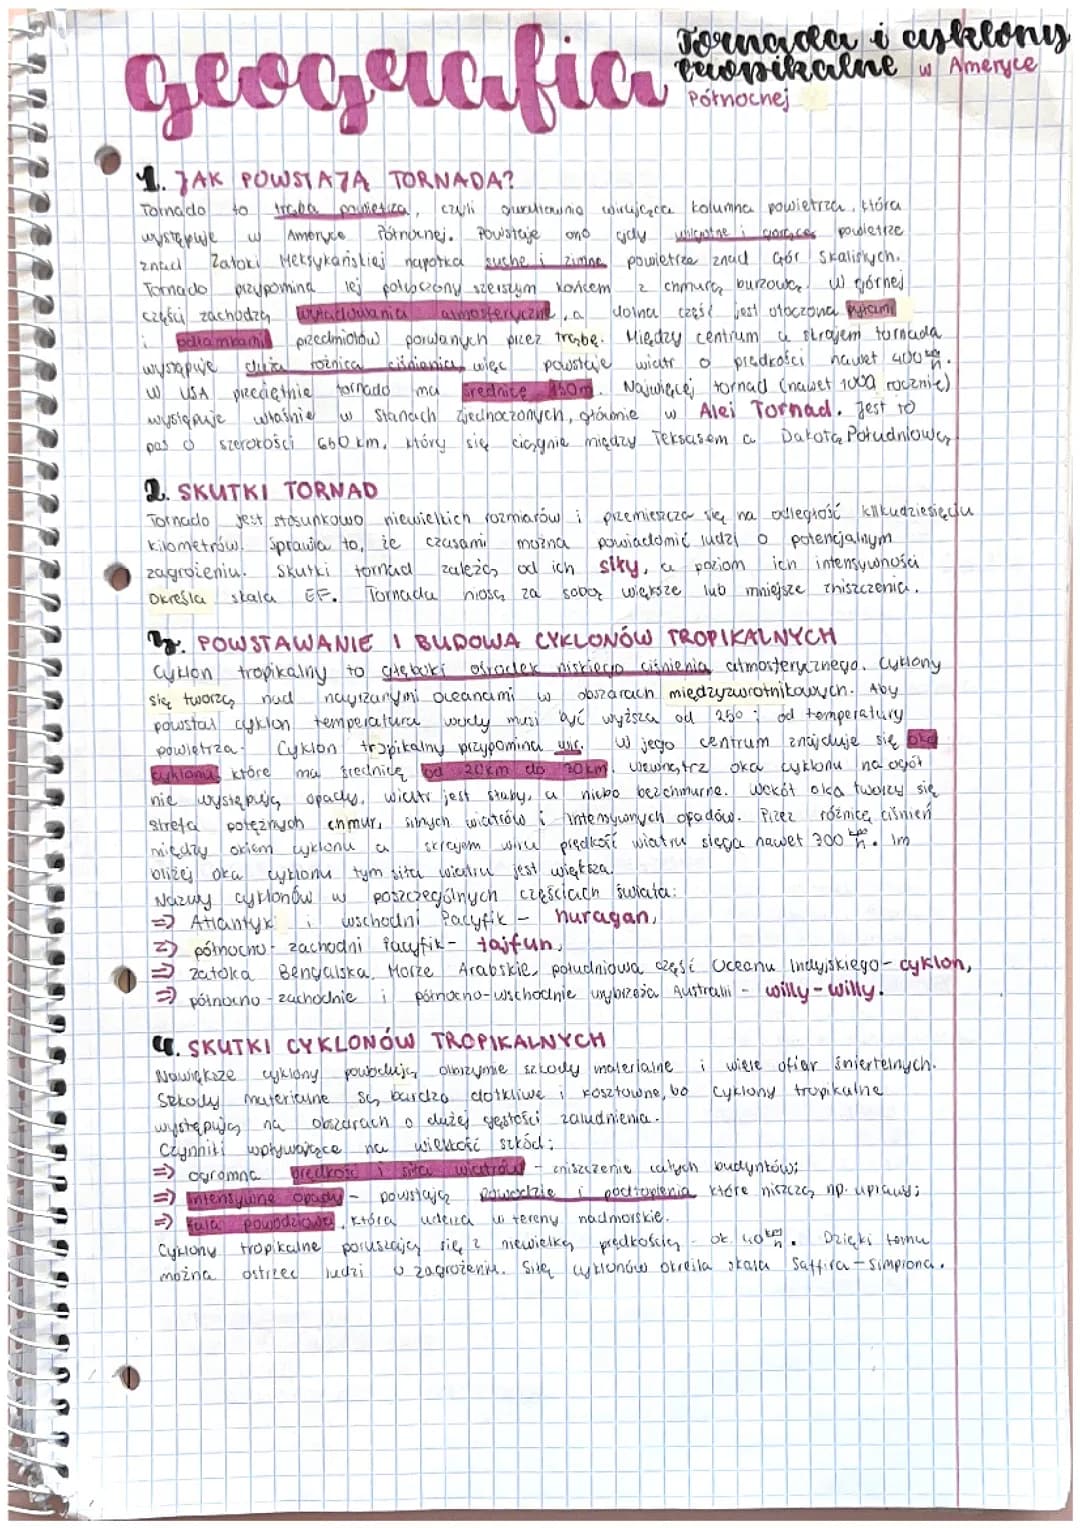 geografia
Tornada i cyklony
tropikalne w Ameryce
Północnej
1. JAK POWSTAJĄ TORNADA?
Tornado to trąba powietrza, czyli gwałtownie wirująca kolumna powietrza, która
występuje w Ameryce Północnej. Powstaje ono gdy wilgotne i gorące powietrze
znad Zatoki Meksykańskiej napotka suche i zimne powietrze znad Gór Skalistych.
Tornado przypomina lej połączony szerszym końcem z chmurą burzową. W górnej
części zachodzą wyładowania atmosferyczne, a dolna część jest otoczona pyłami
i odłamkami przedmiotów porwanych przez trąbę. Między centrum a skrajem tornada
występuje duża różnica ciśnienia, więc powstaje wiatr o prędkości nawet 400 km/h.
W USA przeciętnie tornado ma średnicę 150m. Najwięcej tornad (nawet 1000 rocznie)
występuje właśnie w Stanach Zjednoczonych, głównie w Alei Tornad. Jest to
pas o szerokości 650 km, który się ciągnie między Teksasem a Dakotą Południową.
2. SKUTKI TORNAD
Tornado jest stosunkowo niewielkich rozmiarów i przemieszcza się na odległość kilkudziesięciu
kilometrów. Sprawia to, że czasami można powiadomić ludzi o potencjalnym
zagrożeniu. Skutki tornad zależą od ich siły, a poziom ich intensywności
określa skala EF. Tornada niosą za sobą większe lub mniejsze zniszczenia.
3. POWSTAWANIE I BUDOWA CYKLONÓW TROPIKALNYCH
Cyklon tropikalny to głęboki ośrodek niskiego ciśnienia atmosferycznego. Cyklony
się tworzą nad nagrzanymi oceanami w obszarach międzyzwrotnikowych. Aby
powstał cyklon temperatura wody musi być wyższa od i od temperatury
powietrza. Cyklon tropikalny przypomina wir. W jego centrum znajduje się oko
cyklonu, które ma średnicę od 20km do 30km. Wewnątrz oka cyklonu na ogół
nie występują opady, wiatr jest słaby, a niebo bezchmurne. Wokół oka tworzy się
strefa potężnych chmur, silnych wiatrów i intensywnych opadów. Przez różnicę ciśnień
między okiem cyklonu a skrajem wiru prędkość wiatru sięga nawet 300 km/h. Im
bliżej oka cyklonu tym siła wiatru jest większa.
Nazwy cyklonów w poszczególnych częściach świata:
=> Atlantyk i wschodni Pacyfik - huragan,
=> północno-zachodni Pacyfik- tajfun,
=> Zatoka Bengalska, Morze Arabskie, południowa część Oceanu Indyjskiego- cyklon,
=> północno-zachodnie i północno-wschodnie wybrzeża Australii - willy-willy.
4. SKUTKI CYKLONÓW TROPIKALNYCH
Największe cyklony powodują olbrzymie szkody materialne i wiele ofiar śmiertelnych.
Szkody materialne są bardzo dotkliwe i kosztowne, bo cyklony tropikalne
występują na obszarach o dużej gęstości zaludnienia.
Czynniki wpływające na wielkość szkód:
=> ogromna prędkość i siła wiatrów - zniszczenie całych budynków;
=> intensywne opady - powstają powodzie i podtopienia które niszczą np. uprawy;
=> fala powodziowa, która uderza w tereny nadmorskie.
Cyklony tropikalne poruszają się z niewielką prędkością - ok. 40 km/h. Dzięki temu
można ostrzec ludzi o zagrożeniu. Siłę cyklonów określa skala Saffira-Simpsona.